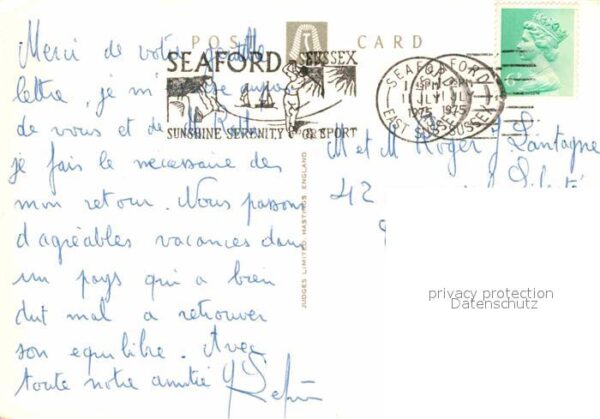 POST CARD
SEAFORD SUSSEX
SUNSHINE SERENITY & SPORT
SEAFORD
1975
EAST SUSSEX
Merci de votre
lettre, je m'
de vous et de M.
je fais le necessaire des
mon retour. Nous passons
d'agréables vacances dans
un pays qui a bien
dut mal a retrouver
son equilibre. Avec
toute notre amitié
M et M Roger Lantagne
42
JUDGES LIMITED, HASTINGS, ENGLAND
privacy protection
Datenschutz